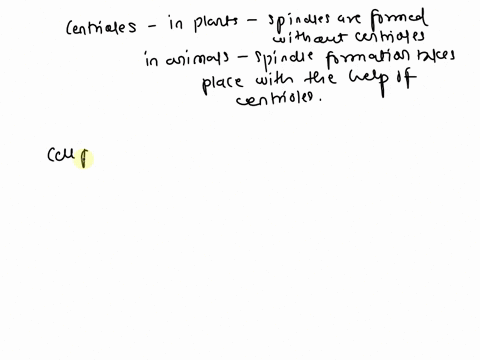 Centrioles - in plants - spindles are formed
without centrioles
in animals - spindle formation takes
place with the help of
centrioles.
Cell p